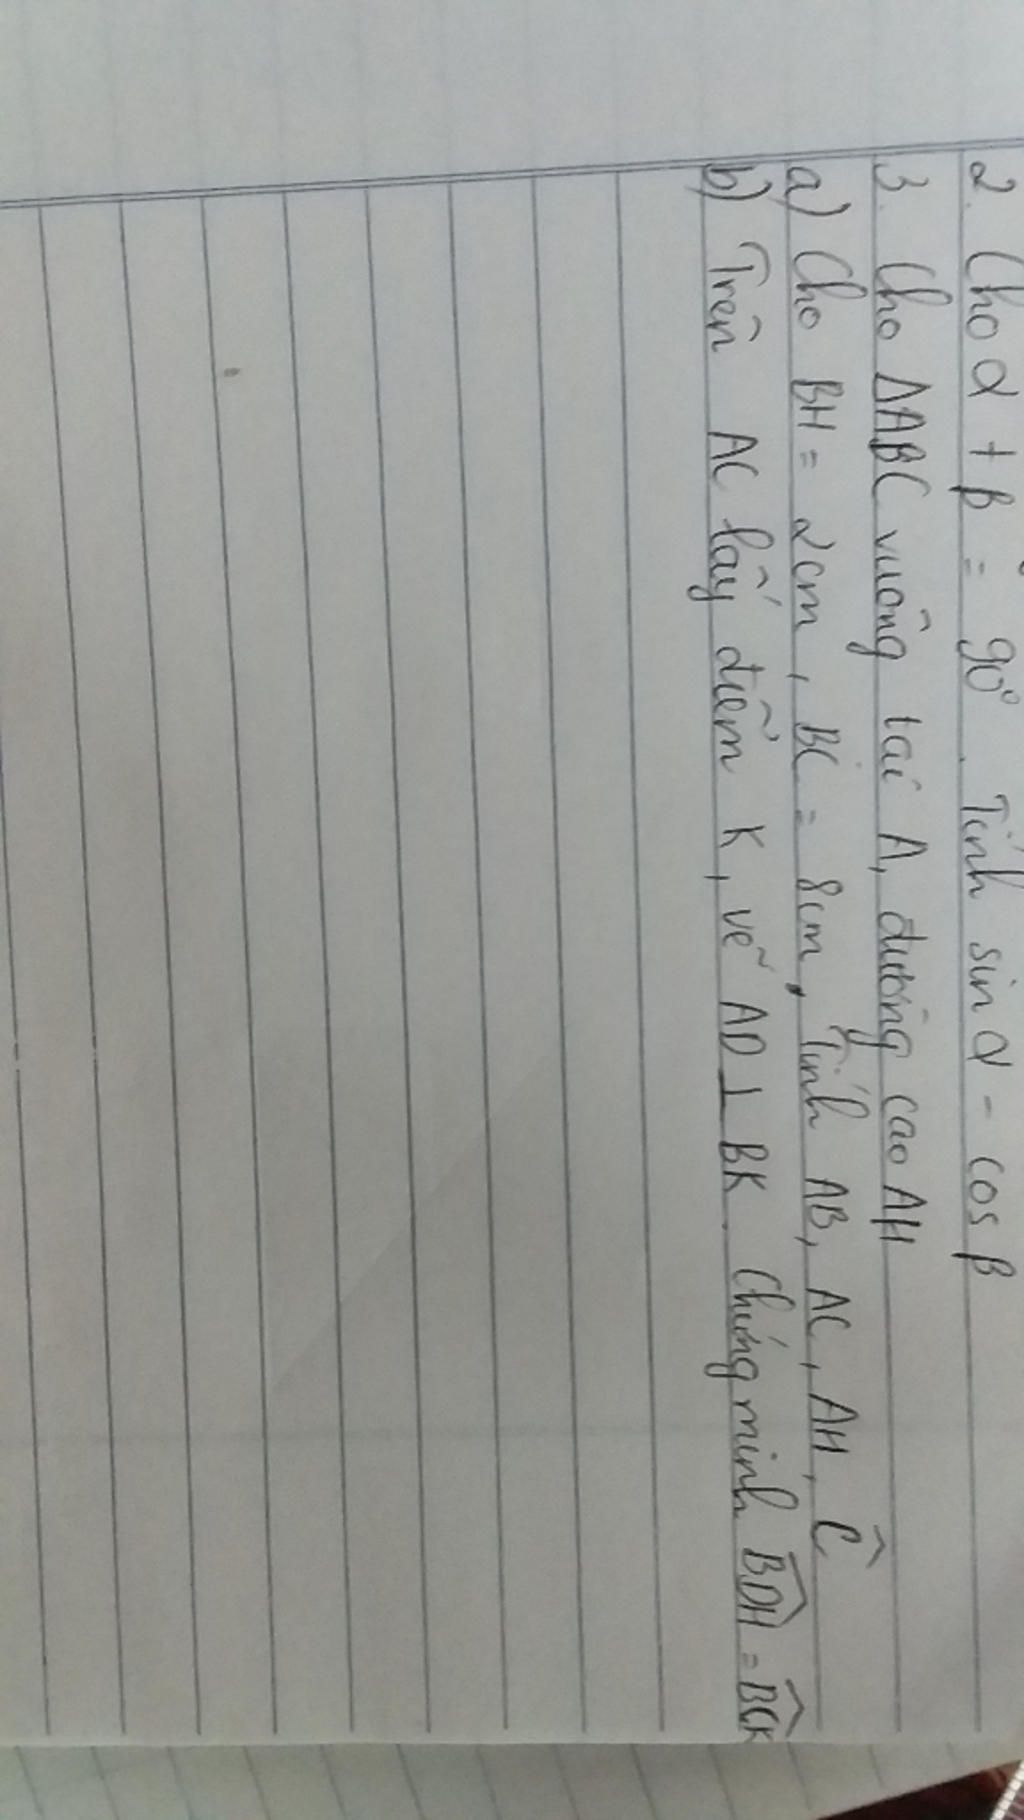 2. Cho α + β = 90°. Tính sin α - cos β
3. Cho ΔABC vuông tại A, đường cao AH
a) Cho BH = 2cm, BC = 8cm, Tính AB, AC, AH, Ĉ
b) Trên AC lấy điểm K, vẽ AD ⊥ BK. Chứng minh \widehat{BDH} = \widehat{BCK}